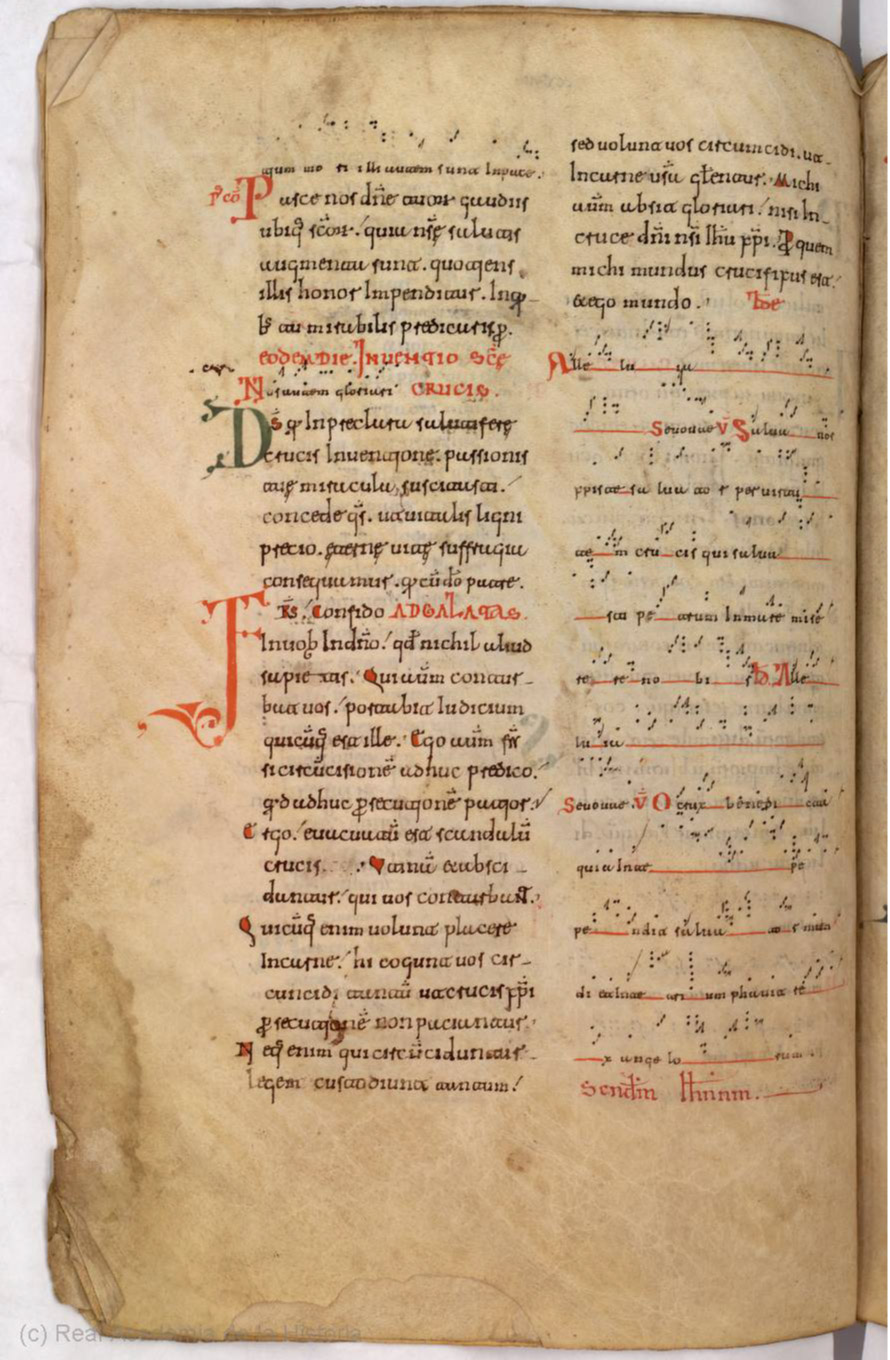 quam mo ri illi autem sunt In pace.
p̄ cō Pasce nos dn̄e tuor gaudiis
ubiq; sc̄or. quia nr̄ę salutis
augmenta sunt. quotiens
illis honor Impenditur. In q̄
b' tu mirabilis predicaris. p.
eodem DIE. INUENTIO SCĒ
Nos autem gloriari CRUCIS.
Ds̄ q̄ In preclara salutiferę
crucis Inuentione. passionis
tuę miracula suscitasti.
concede qs̄. ut uitalis ligni
precio. ęternę uitę suffragia
consequamur. q̄ cū dō patre.
FRs̄. Confido AD GALATAS.
In uob Indn̄o. qd̄ nichil aliud
sapietis. Qui aūm contur-
bat uos. portabit Iudicium
quicūq; est ille. Ego aūm fr̄s
si circūcisionē adhuc predico.
qd adhuc p̱secutionē patior.
Ergo. euacuatū est scandalū
crucis. Utinā & absci-
dantur. qui uos conturbant.
Quicūq; enim uolunt placere
In carne. hi cogunt uos cir-
cuncidi tantū ut crucis xp̄i
p̱secutionē non patiantur.
Neq; enim qui circūciduntur
legem custodiunt tantum.
sed uolunt uos circumcidi. ut
In carne ur̄a gl̄entur. Michi
aūm absit gloriari. nisi In
cruce dn̄i nr̄i Ih̄u xp̄i. P quem
michi mundus crucifixus est.
& ego mundo.
Alle lu ya
Seuouae V̄ Salua nos
xpiste sa lua to r per uirtu
te m cru cis qui salua
sti pe trum In mare mise
re re no bi s Alle
lu ia
Seuouae. V̄ O crux benedi cta
quia In te pe
pe ndit salua to r mun
di et In te tri um phauit re
x ange lo rum